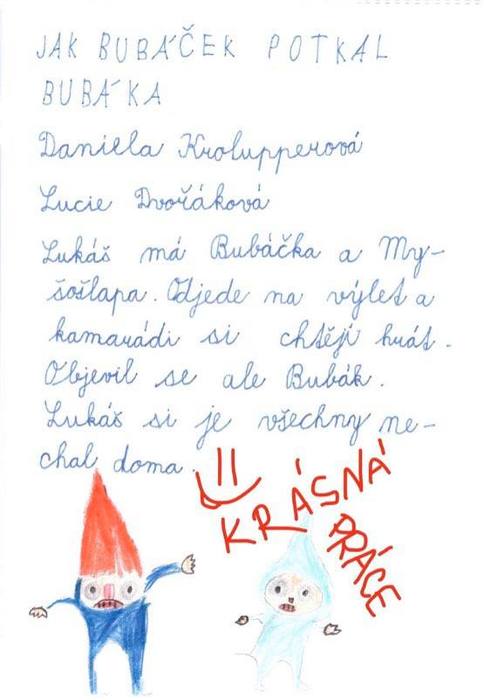 JAK BUBÁČEK POTKAL
BUBÁKA
Daniela Krolupperová
Lucie Dvořáková
Lukáš má Bubáčka a My-
šošlapa. Odjede na výlet a
kamarádi si chtějí hrát.
Objevil se ale Bubák.
Lukáš si je všechny ne-
chal doma.
KRÁSNÁ
PRÁCE